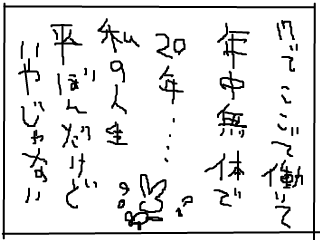 ﾘﾃﾞここで働いて
年中無体で
20年……
私の人生
平ぼんだけど
いやじゃない